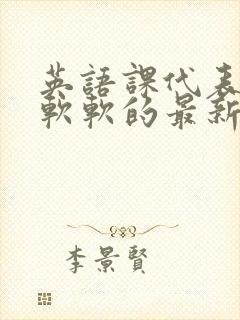 英語課代表
軟軟的最新
李景賢